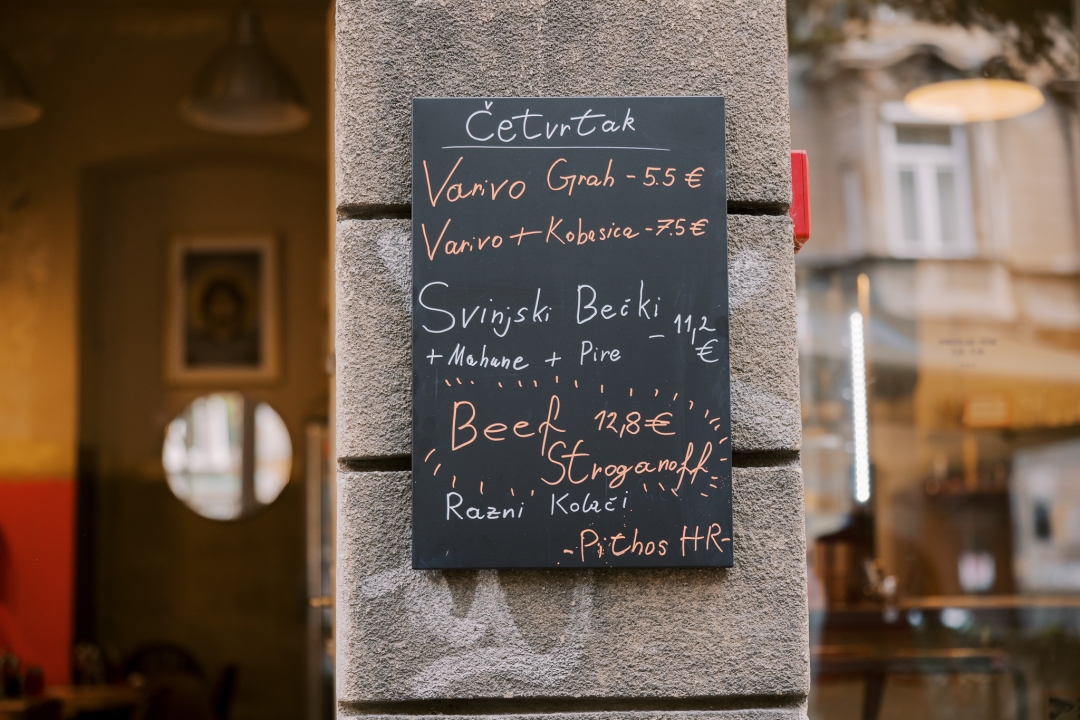 Četvrtak
Varivo Grah - 5.5 €
Varivo + Kobasica - 7.5 €
Svinjski Bečki
- 11,2 €
+ Mahune + Pire
Beef 12,8 €
Stroganoff
Razni Kolači
- Pithos HR -